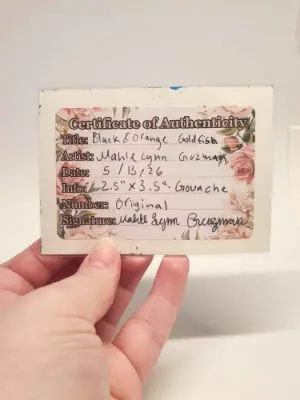 Certificate of Authenticity
Title: Black & Orange Goldfish
Artist: Mahle Lynn Guzman
Date: 5/13/26
Info: 2.5" x 3.5" · Gouache
Number: Original
Signature: Mahle Lynn Guzman